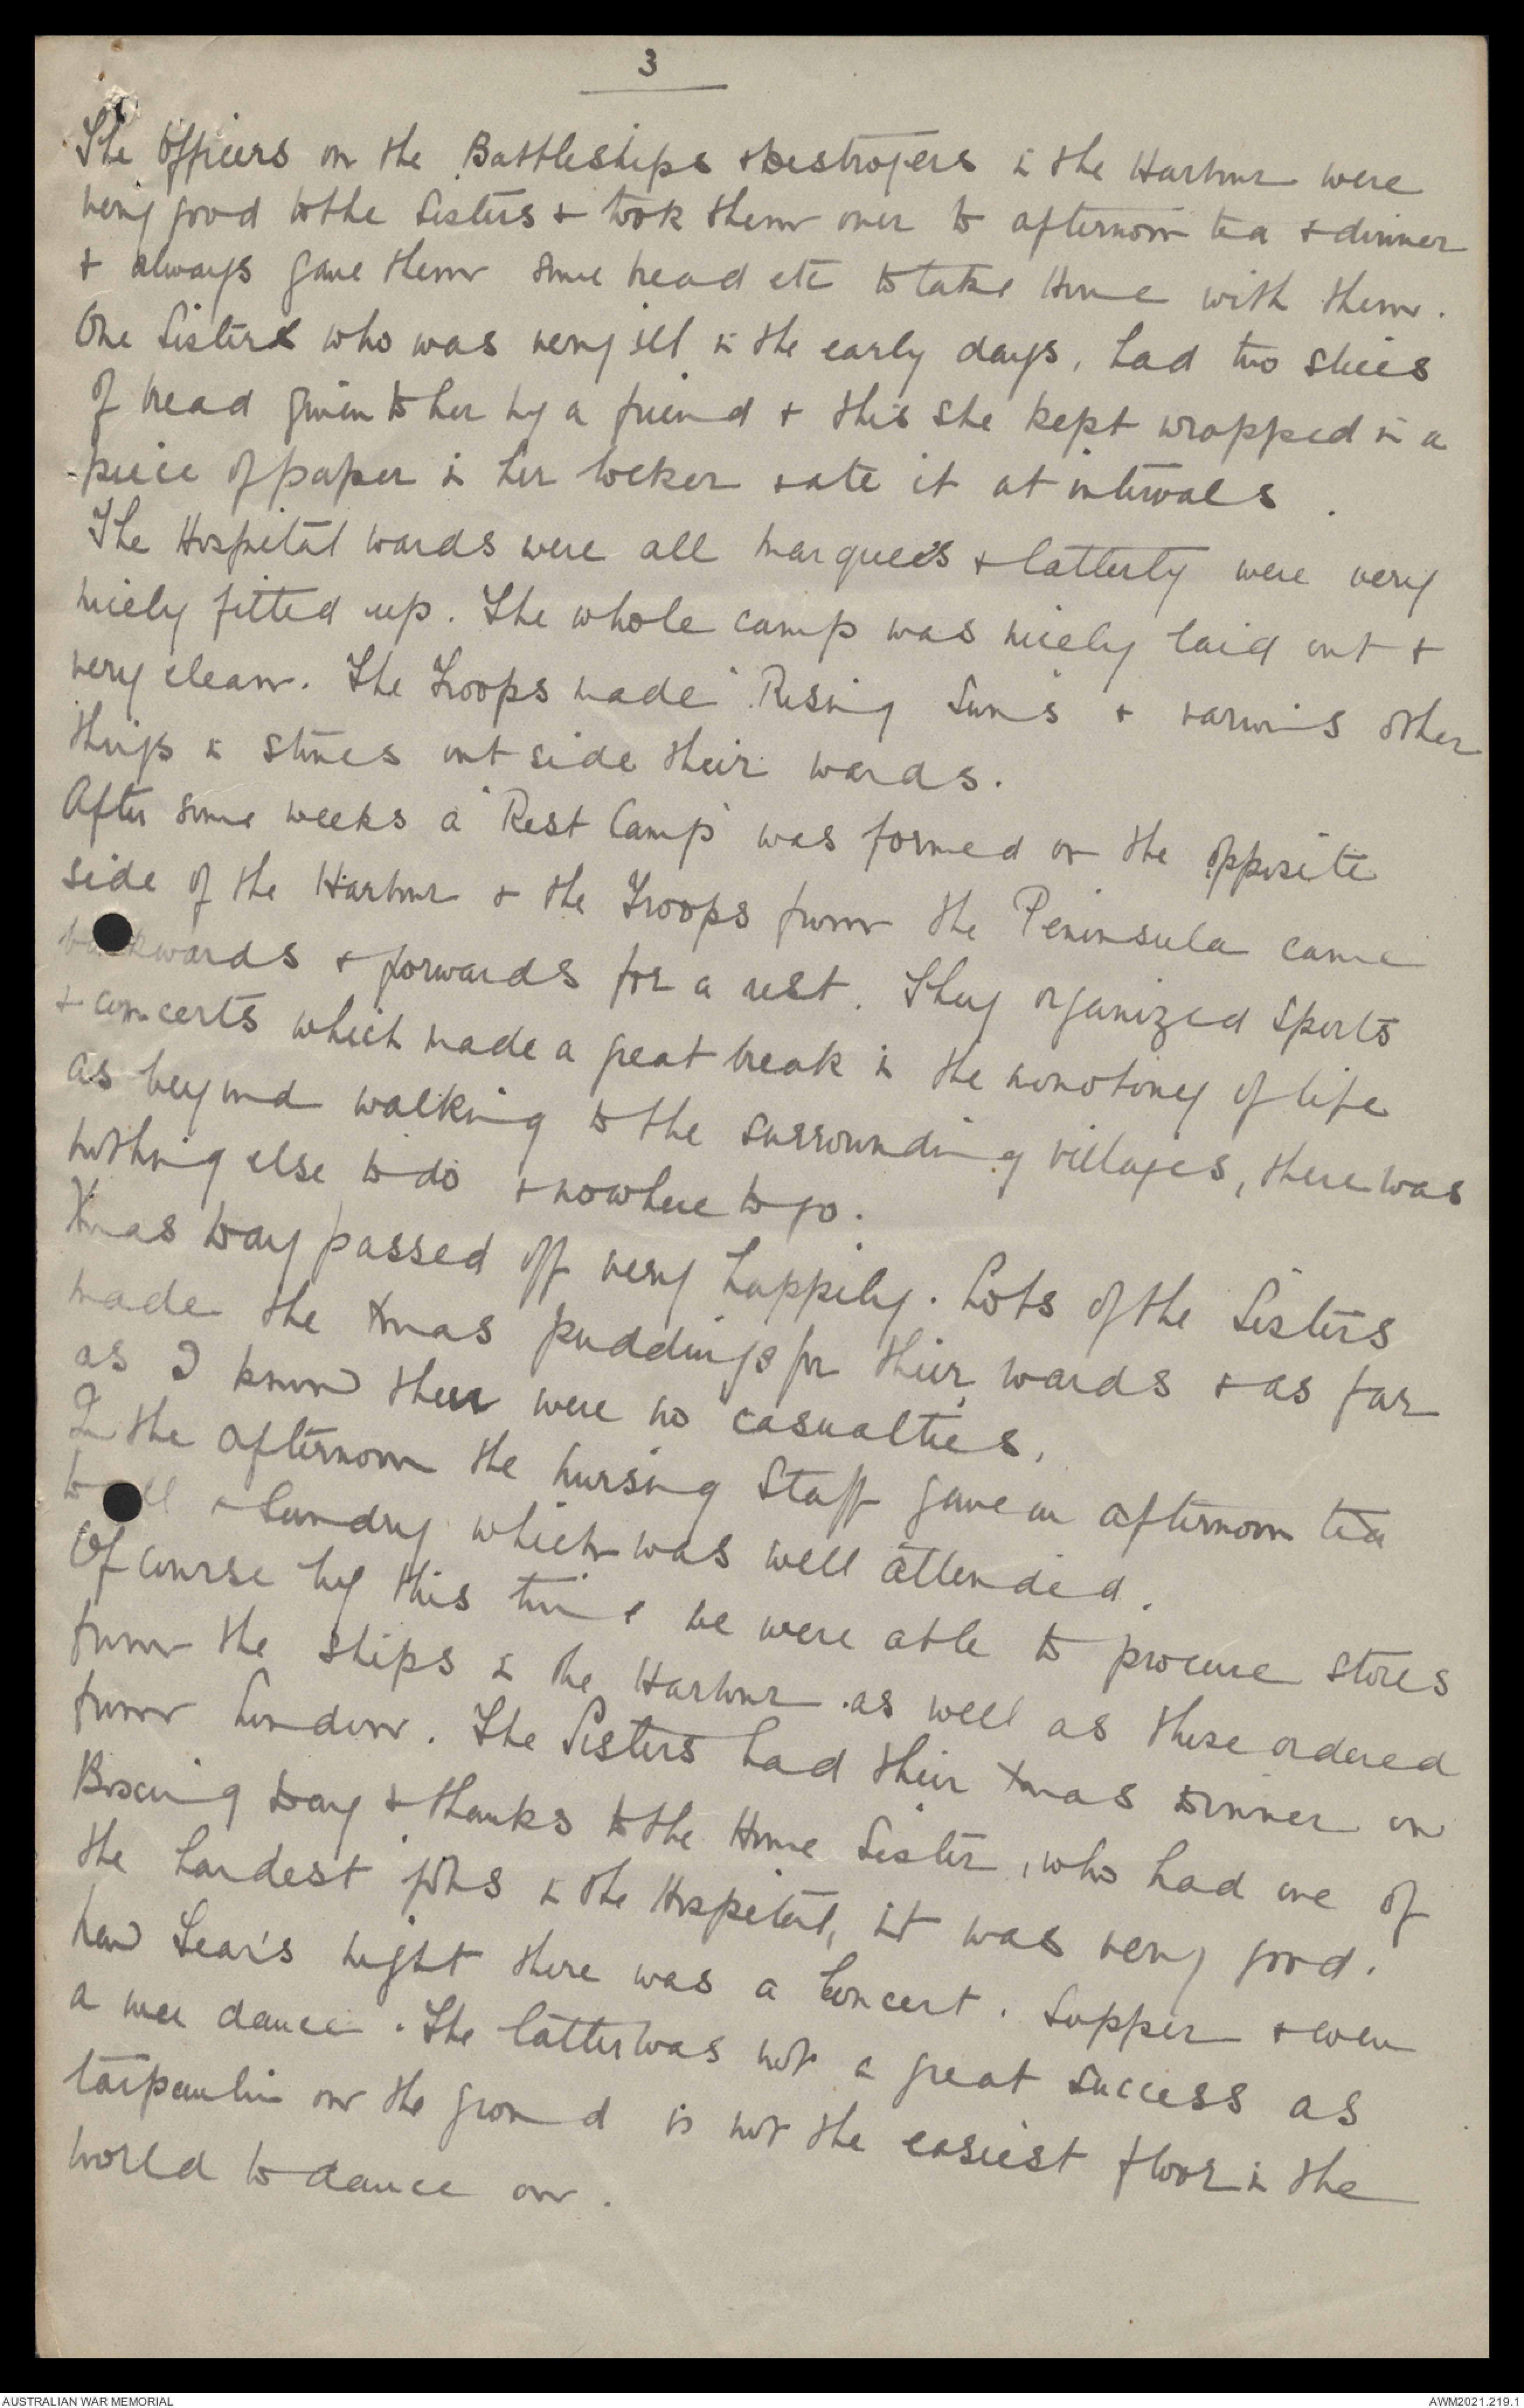 3
The Officers on the Battleships & Destroyers in the Harbour were
very good to the Sisters & took them over to afternoon tea & dinner
& always gave them some bread etc to take Home with them.
One Sister who was very ill in the early days, had two slices
of bread given to her by a friend & this she kept wrapped in a
peice of paper in her locker & ate it at intervals.
The Hospital wards were all marquees & latterly were very
nicely fitted up. The whole camp was nicely laid out &
very clean. The Troops made "Rising Suns" & various other
things in stones outside their wards.
After some weeks a "Rest Camp" was formed on the opposite
side of the Harbour & the Troops from the Peninsula came
backwards & forwards for a rest. They organized Sports
& concerts which made a great break in the monotony of life
as beyond walking to the surrounding villages, there was
nothing else to do & nowhere to go.
Xmas Day passed off very happily. Lots of the Sisters
made the Xmas puddings for their wards & as far
as I know there were no casualties.
In the afternoon the nursing Staff gave an afternoon tea
to all & Sundry which was well attended.
Of course by this time we were able to procure stores
from the ships in the Harbour as well as those ordered
from London. The Sisters had their Xmas Dinner on
Boxing Day & thanks to the Home Sister, who had one of
the hardest jobs in the Hospital, it was very good.
New Year's night there was a Concert. Supper & even
a wee dance. The latter was not a great success as
tarpaulin on the ground is not the easiest floor in the
world to dance on.
AUSTRALIAN WAR MEMORIAL
AWM2021.219.1